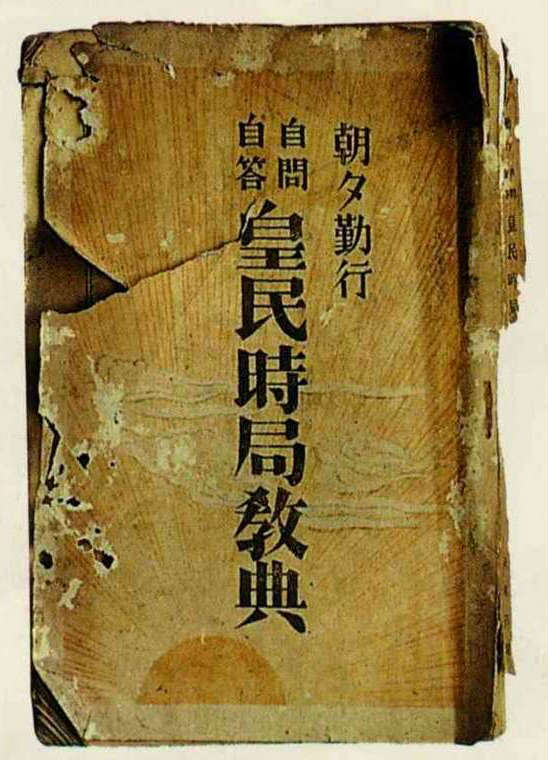 朝夕勤行
自問
自答
皇民時局教典
皇民時局